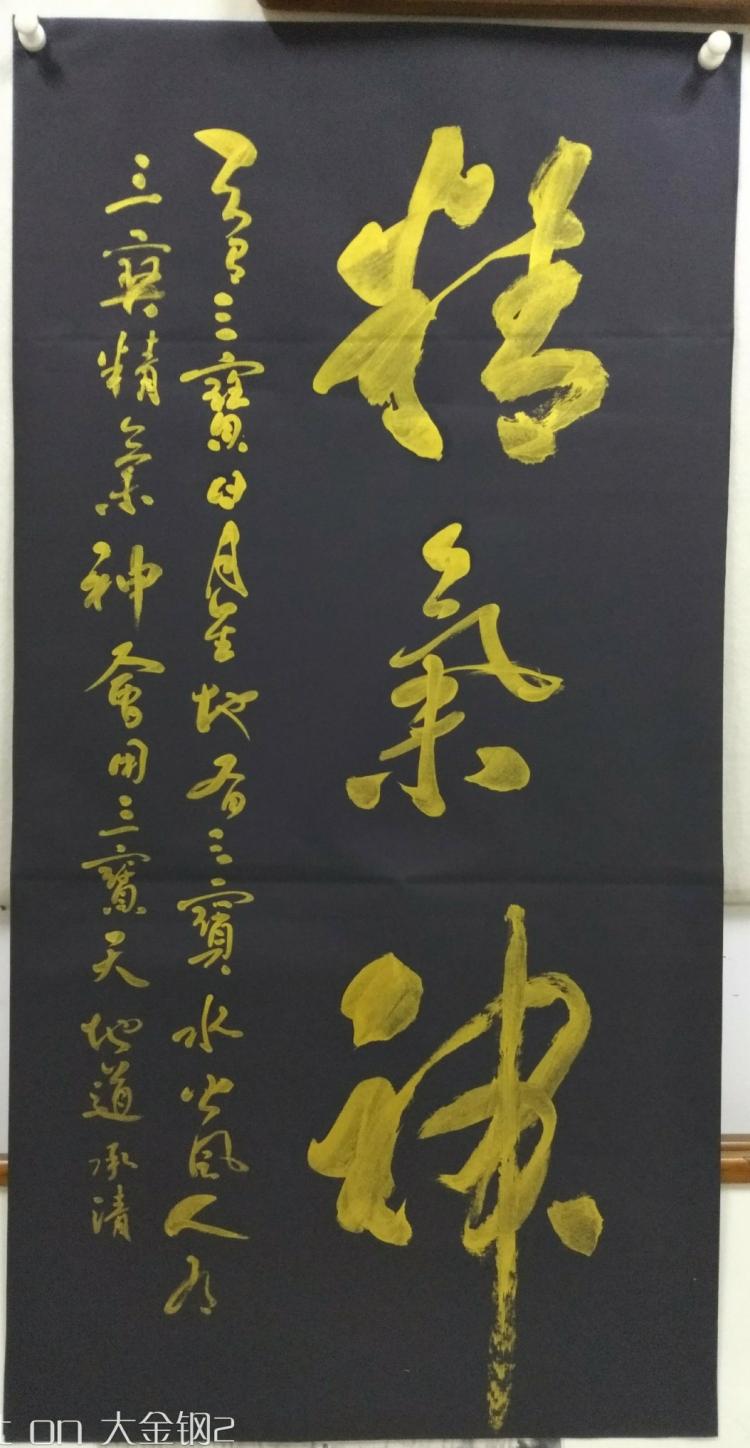 精氣神
天有三寶日月星地有三寶水火風人有
三寶精氣神會用三寶天地道承清
on 大金钢2